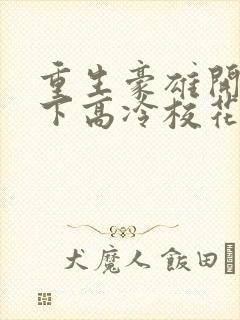 重生豪雄開
下高冷校花
犬魔人飯田